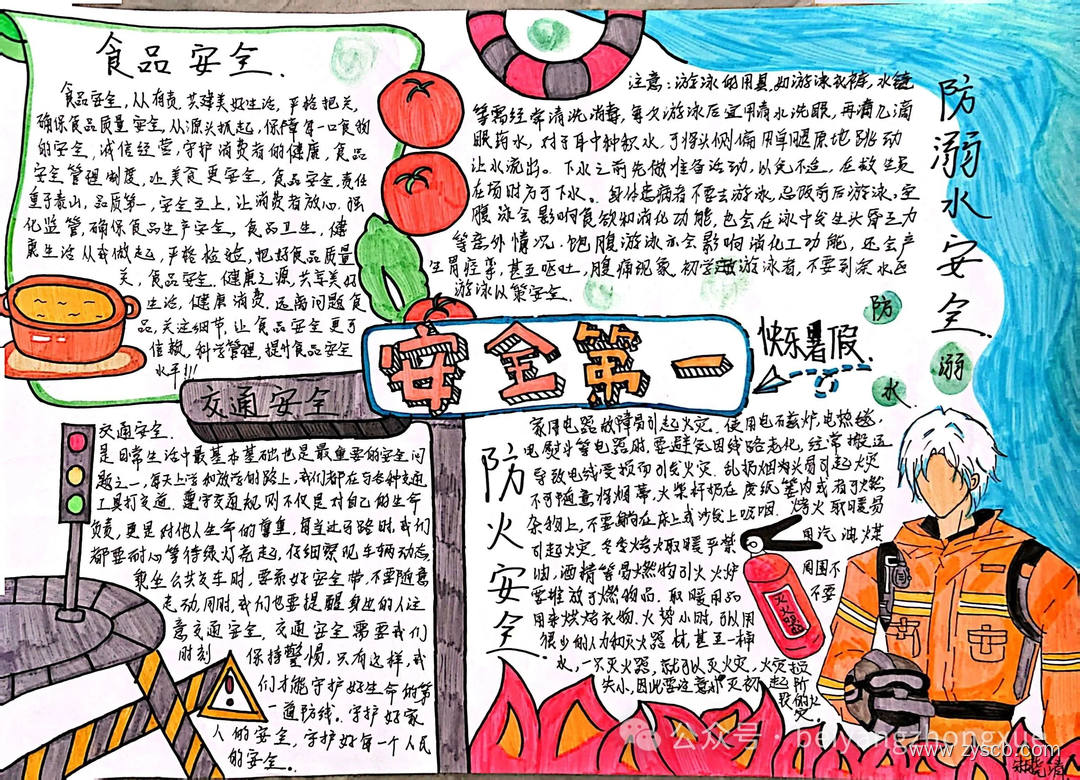 食品安全.
食品安全,从有责,共臻美好生活,严格把关,
确保食品质量安全,从源头抓起,保障每一口食物
的安全,诚信经营,守护消费者的健康,食品
安全管理制度,让美食更安全,食品安全,责任
重于泰山,品质第一,安全至上,让消费者放心.强
化监管,确保食品生产安全,食品卫生,健
康生活从我做起,严格检验,把好食品质量
关,食品安全.健康之源,共享美好
生活,健康消费,远离问题食
品,关注细节,让食品安全更可
信赖,科学管理,提升食品安全
水平!!!
注意:游泳的用具,如游泳衣裤,水镜
等需经常清洗消毒,每次游泳后宜用清水洗眼,再滴几滴
眼药水,对于耳中种积水,可将头侧偏用单腿原地跳动
让水流出。下水之前先做准备活动,以免不适,在救生员
在场时方可下水。身体患病者不要去游泳,忌饭前后游泳,空
腹泳会影响食欲和消化功能,也会在泳中发生头昏乏力
等意外情况,饱腹游泳亦会影响消化工功能,还会产
生胃痉挛,甚至呕吐,腹痛现象,初学游泳者,不要到深水区
游泳以策安全.
防溺水安全.
安全第一
快乐暑假.
防
溺
水
交通安全
交通安全.
是日常生活中最基本基础也是最重要的安全问
题之一,每天上学和放学的路上,我们都在与各种交通
工具打交道.遵守交通规则不仅是对自己的生命
负责,更是对他人生命的尊重,每当过马路时,我们
都要耐心等待绿灯亮起,仔细察见车辆动态
乘坐公共交车时,要系好安全带,不要随意
走动,同时,我们也要提醒身边的人注
意交通安全,交通安全需要我们
时刻保持警惕,只有这样,我
们才能守护好生命的第
一道防线。守护好家
人的安全,守护好每一个人民
的安全。
防火安全.
家用电器故障易引起火灾.使用电石兹炉,电热毯,
电熨斗等电器时,要避免因线路老化,经常搬运
导致电线受损而引线火灾,乱扔烟为头易引起火灾
不可随意将烟蒂,火柴杆扔在废纸篓内或者可燃
杂物上,不要躺在床上或沙发上吸烟.烤火取暖易
引起火灾.冬季烤火取暖严禁用汽油煤
油,酒精等易燃物引火火炉周围不
要堆放可燃物品.取暖用品不要
用来烘烤衣物.火势小时,可以用
很少的人力和灭火器材,甚至一桶
水,一只灭火器,就可以灭火灾,火灾起
灭火器
www.zyscb.com
公众号·beiyangzhongxue